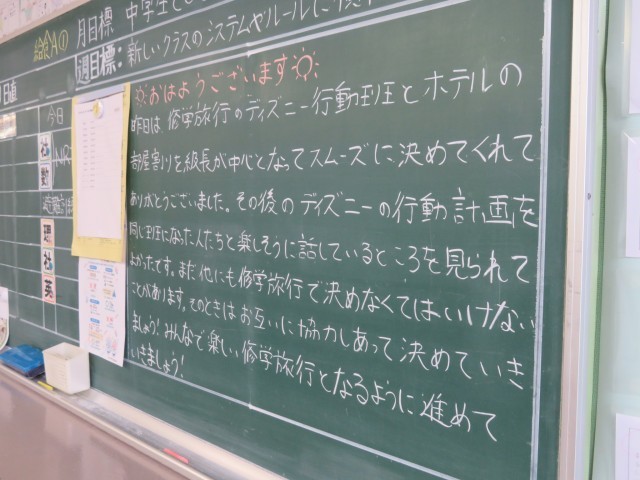 給食Aの
月目標 中学生と
週目標: 新しいクラスのシステムやルールに
おはようございます
昨日は、修学旅行のディズニー行動班とホテルの
部屋割りを級長が中心となってスムーズに決めてくれて
ありがとうございました。その後のディズニーの行動計画を
同じ班になった人たちと楽しそうに話しているところを見られて
よかったです。まだ他にも修学旅行で決めなくてはいけない
ことがあります。そのときはお互いに協力しあって決めていき
ましょう!みんなで楽しい修学旅行となるように進めて
いきましょう!
今日
社
数
理
社
英